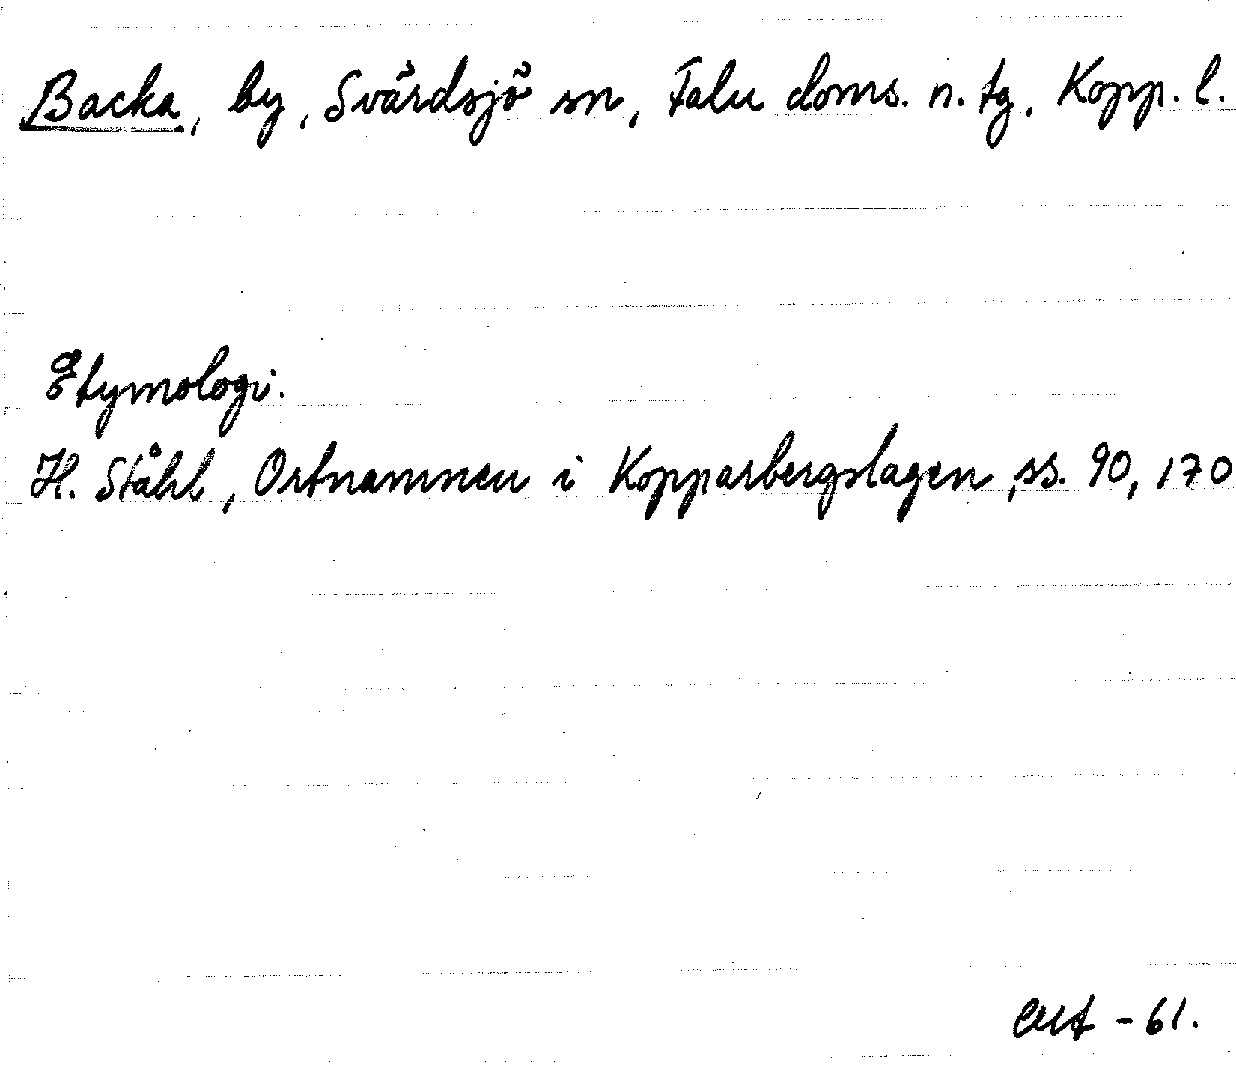 Backa, by, Svärdsjö sn, Falu doms. n. tg, Kopp. l.
Etymologi.
H. Ståhl, Ortnamnen i Kopparbergslagen, ss. 90, 170
-61.